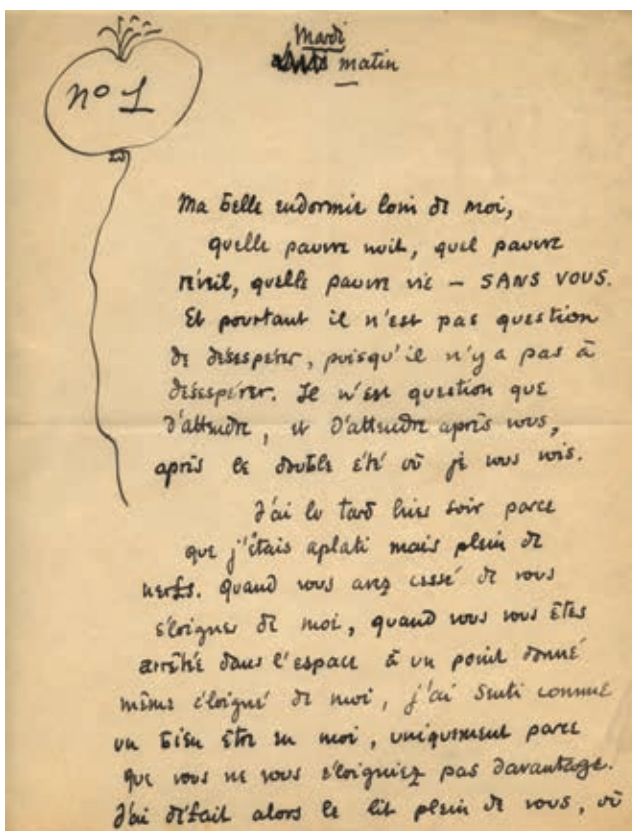 n° 1
Mardi
matin
Ma belle endormie loin de moi,
quelle pauvre nuit, quel pauvre
réveil, quelle pauvre vie – SANS VOUS.
Et pourtant il n'est pas question
de désespérer, puisqu'il n'y a pas à
désespérer. Il n'est question que
d'attendre, et d'attendre après vous,
après le double été où je vous vois.
J'ai lu tard hier soir parce
que j'étais aplati mais plein de
nerfs. Quand vous avez cessé de vous
éloigner de moi, quand vous vous êtes
arrêtée dans l'espace à un point donné
même éloigné de moi, j'ai senti comme
un bien être en moi, uniquement parce
que vous ne vous éloigniez pas davantage.
J'ai défait alors le lit plein de vous, où